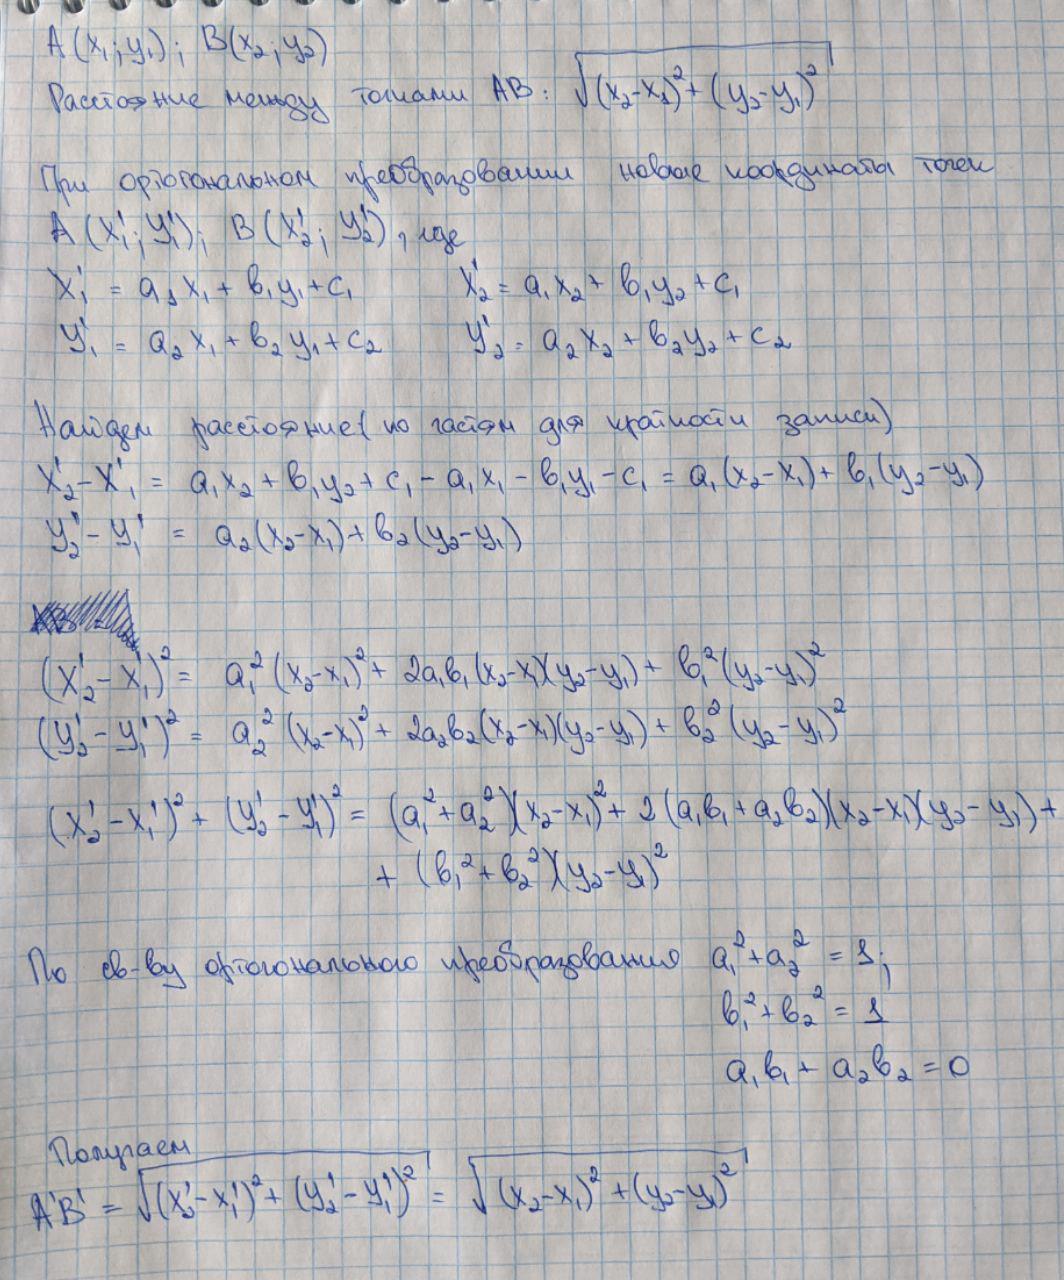 A(x₁; y₁); B(x₂; y₂)
Расстояние между точками AB: √((x₂-x₁)² + (y₂-y₁)²)
При ортогональном преобразовании новые координаты точек
A(x₁'; y₁'); B(x₂'; y₂'), где
x₁' = a₁x₁ + b₁y₁ + c₁ x₂' = a₁x₂ + b₁y₂ + c₁
y₁' = a₂x₁ + b₂y₁ + c₂ y₂' = a₂x₂ + b₂y₂ + c₂
Найдем расстояние (по частям для краткости записи)
x₂' - x₁' = a₁x₂ + b₁y₂ + c₁ - a₁x₁ - b₁y₁ - c₁ = a₁(x₂-x₁) + b₁(y₂-y₁)
y₂' - y₁' = a₂(x₂-x₁) + b₂(y₂-y₁)
(x₂' - x₁')² = a₁²(x₂-x₁)² + 2a₁b₁(x₂-x₁)(y₂-y₁) + b₁²(y₂-y₁)²
(y₂' - y₁')² = a₂²(x₂-x₁)² + 2a₂b₂(x₂-x₁)(y₂-y₁) + b₂²(y₂-y₁)²
(x₂' - x₁')² + (y₂' - y₁')² = (a₁² + a₂²)(x₂-x₁)² + 2(a₁b₁ + a₂b₂)(x₂-x₁)(y₂-y₁) +
+ (b₁² + b₂²)(y₂-y₁)²
По св-ву ортогонального преобразования a₁² + a₂² = 1;
b₁² + b₂² = 1
a₁b₁ + a₂b₂ = 0
Получаем
A'B' = √((x₂'-x₁')² + (y₂'-y₁')²) = √((x₂-x₁)² + (y₂-y₁)²)